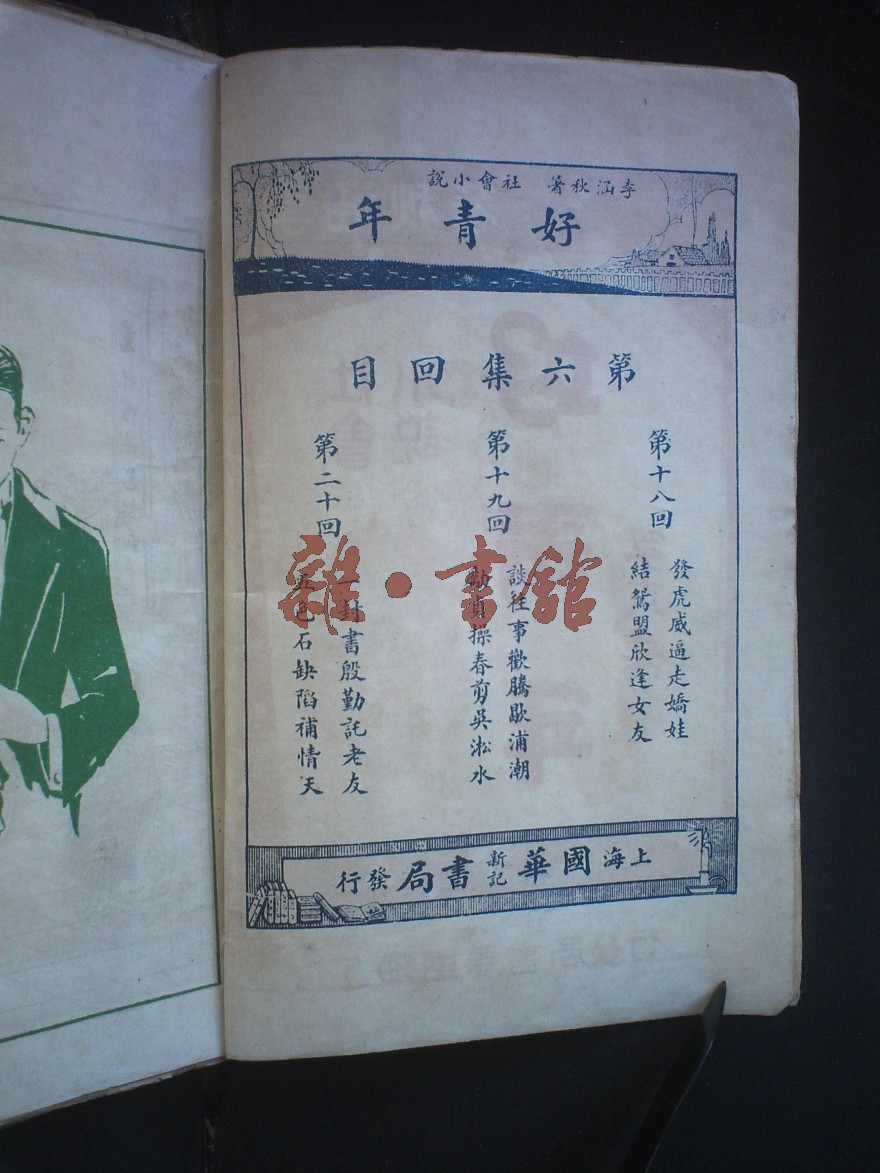 李涵秋著 社會小說
好青年
第六集回目
第十八回
發虎威逼走嬌娃
結鴛盟欣逢女友
第十九回
談往事歡騰歇浦潮
操春剪吳淞水
第二十回
一封書殷勤託老友
五色石缺陷補情天
上海國華新記書局發行
雜·書館